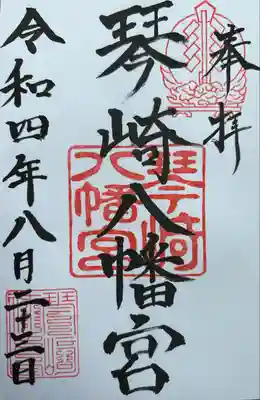 奉拝
琴崎八幡宮
琴崎
八幡宮
令和四年八月二十三日